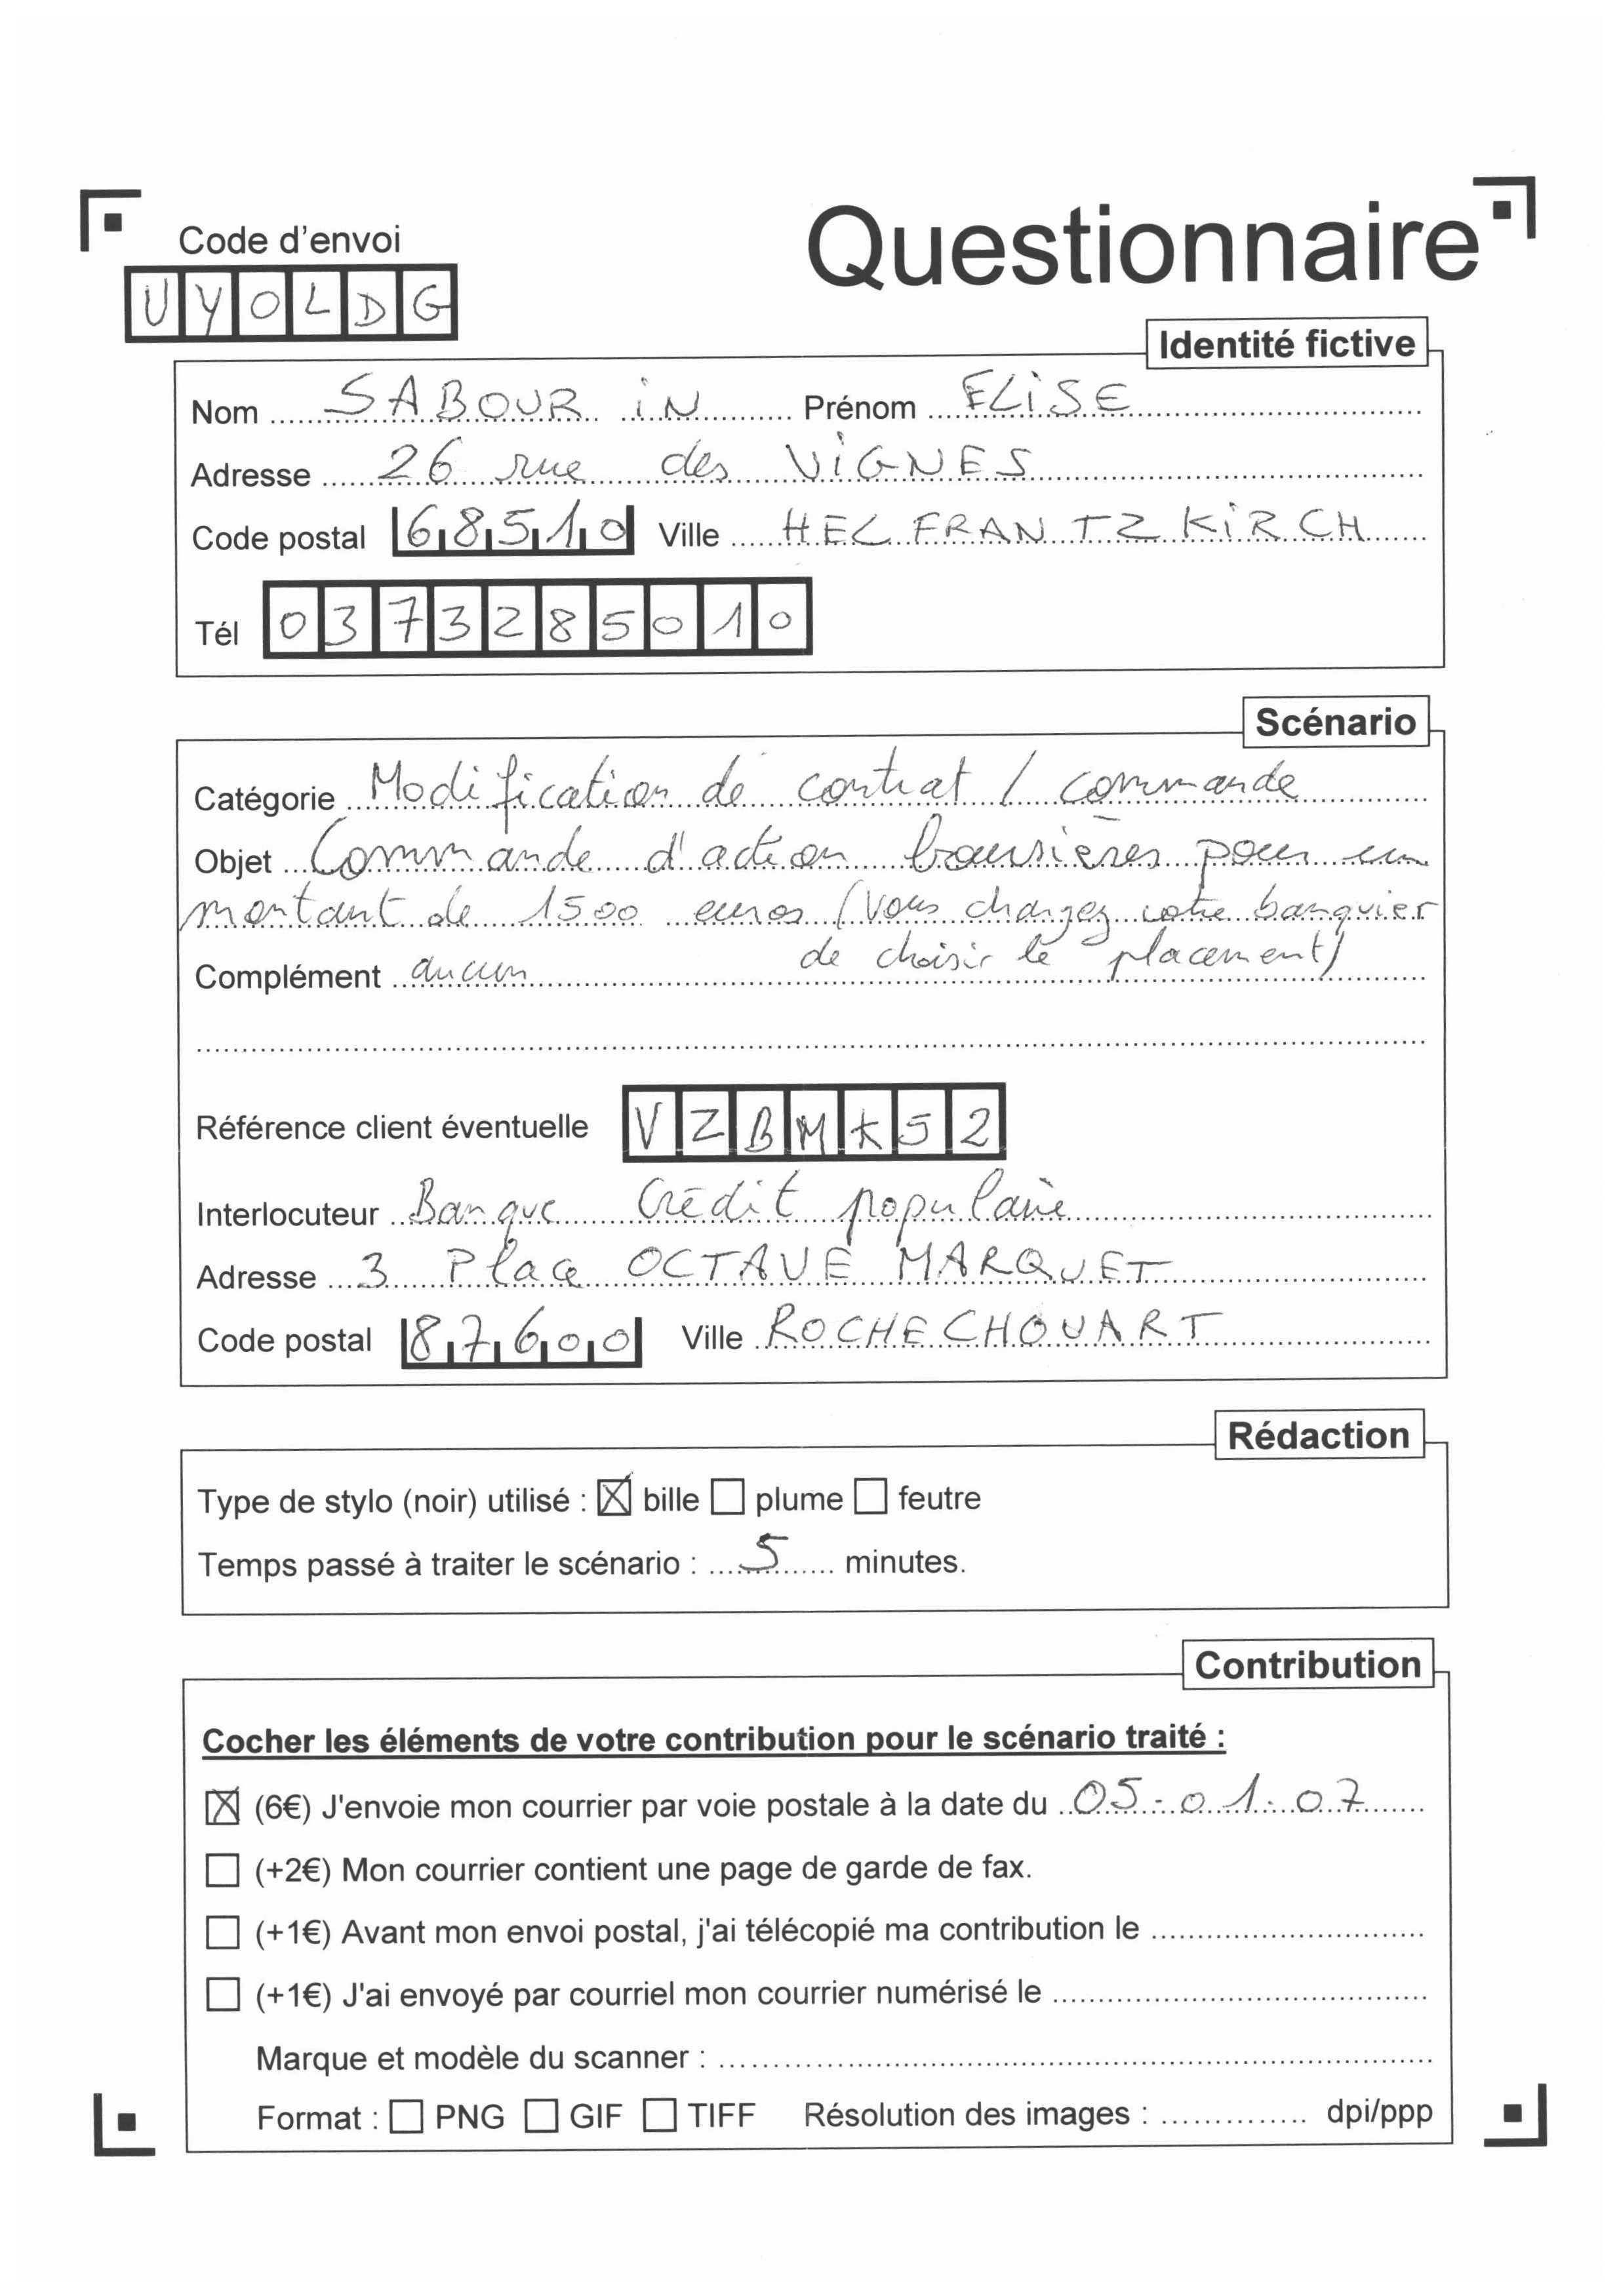 Code d'envoi
Questionnaire
UYOLDG
Identité fictive
Nom SABOURiN Prénom ELiSE
Adresse 26 rue des ViGNES
Code postal 68510 Ville HELFRANTZKiRCH
Tél 0373285010
Scénario
Catégorie Modification de contrat / commande
Objet Commande d'action boursières pour un
montant de 1500 euros (vous chargez votre banquier
de choisir le placement)
Complément aucun
Référence client éventuelle VZBMK52
Interlocuteur Banque Crédit populaire
Adresse 3 Place OCTAVE MARQUET
Code postal 87600 Ville ROCHECHOUART
Rédaction
Type de stylo (noir) utilisé : ☒ bille ☐ plume ☐ feutre
Temps passé à traiter le scénario : 5 minutes.
Contribution
Cocher les éléments de votre contribution pour le scénario traité :
☒ (6€) J'envoie mon courrier par voie postale à la date du 05.01.07
☐ (+2€) Mon courrier contient une page de garde de fax.
☐ (+1€) Avant mon envoi postal, j'ai télécopié ma contribution le
☐ (+1€) J'ai envoyé par courriel mon courrier numérisé le
Marque et modèle du scanner :
Format : ☐ PNG ☐ GIF ☐ TIFF Résolution des images : dpi/ppp